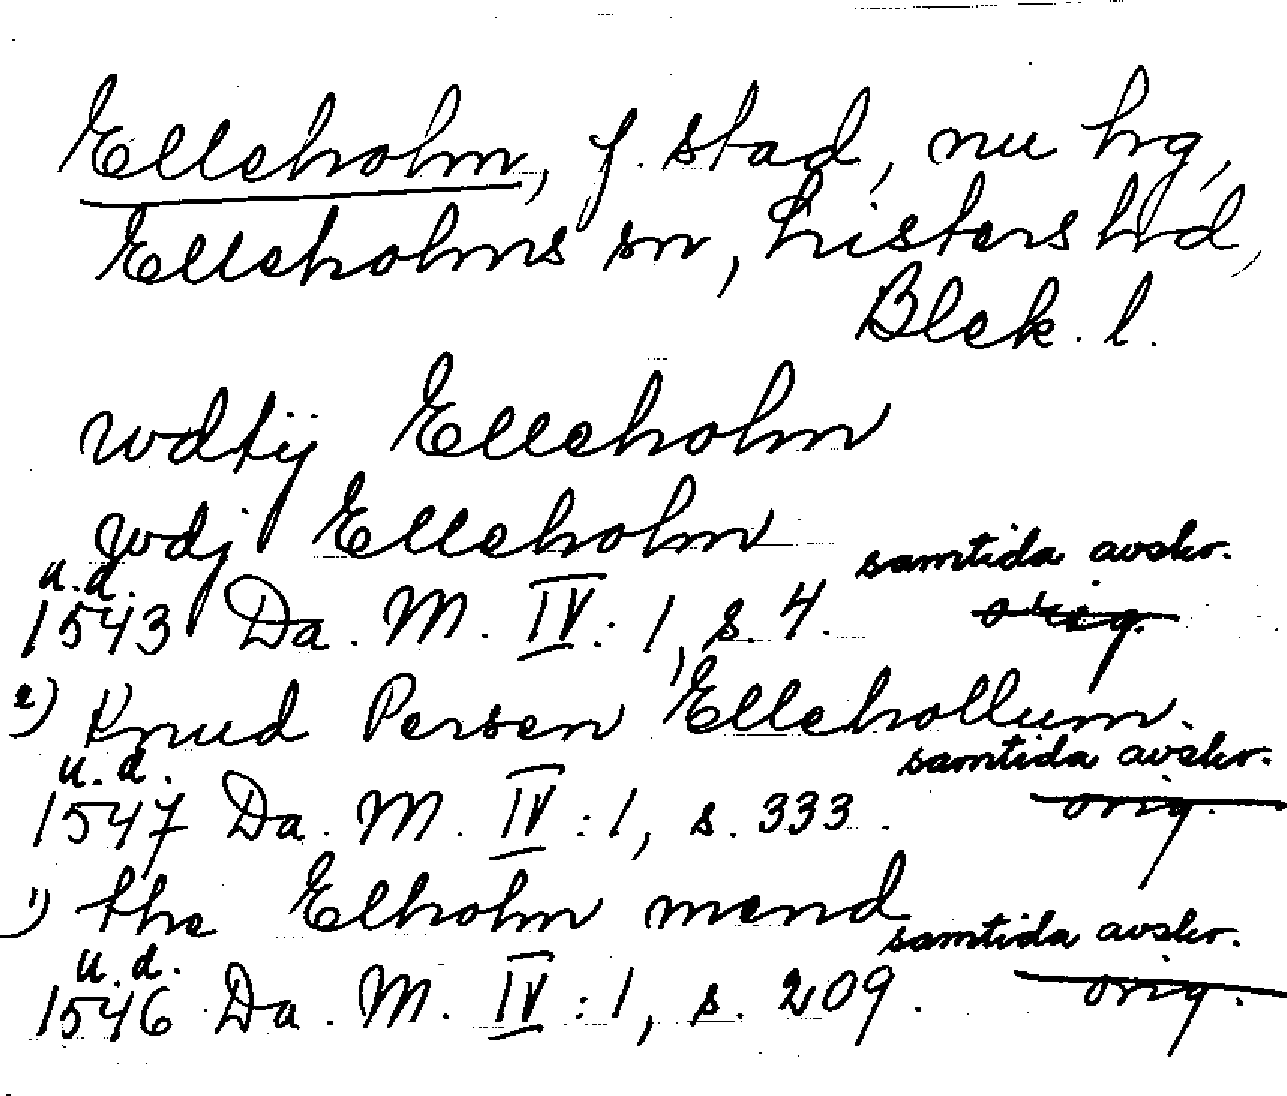 Elleholm, f. stad, nu hg,
Elleholms sn, Listers hd,
Blek. l.
wdtij Elleholm
wdj Elleholm
samtida avskr.
u.d.
1543 Da. M. IV:1, s. 4. orig.
2) Knud Persen Ellehollum.
samtida avskr.
u.d.
1547 Da. M. IV:1, s. 333. orig.
1) the Elholm mend
samtida avskr.
u.d.
1546 Da. M. IV:1, s. 209. orig.